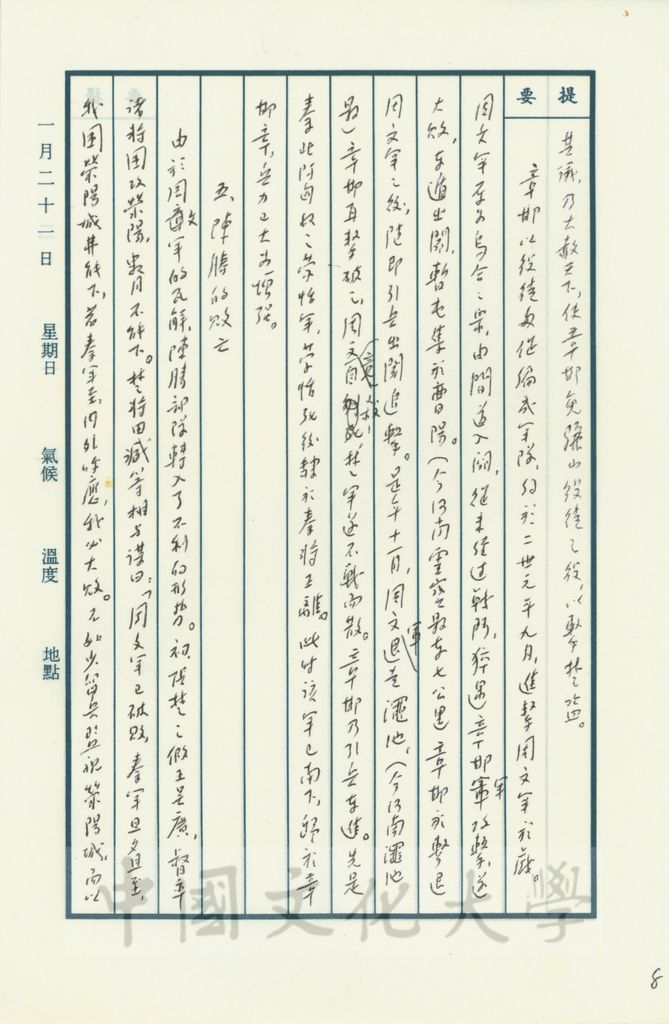 提要
其議，乃大赦天下，使章邯免驪山役徒之役，以擊楚盜。
章邯以役徒為從編成軍隊，約於二世元年九月，進擊周文軍於戲。
周文軍原為烏合之眾，由間道入關，從未經過戰鬥，猝遇章邯軍攻擊，遂
大敗，東遁出關，暫屯集於曹陽。（今河南靈寶之最東七公里 章邯於擊退
周文軍之後，隨即引兵出關追擊。是年十一月，周文軍退走澠池，（今河南澠池
縣）章邯再擊破之，周文自剄死，楚軍遂不戰而散。章邯乃引兵東進。先是
秦北防匈奴之蒙恬軍，蒙恬死後隸於秦將王離。此時該軍已南下，歸於章
邯章，兵力已大為增强。
五、陳勝的敗亡
由於周文軍的瓦解，陳勝部隊轉入了不利的形勢。初，張楚之假王吳廣，督率
諸將圍攻滎陽，數月不能下。楚將田臧等相與謀曰：「周文軍已破敗，秦軍旦夕且至，
我圍滎陽城弗能下，若秦軍至，內外呼應，我必大敗。不如少留兵監視滎陽城，而以
一月二十一日 星期日 氣候 溫度 地點
中國文化大學
8